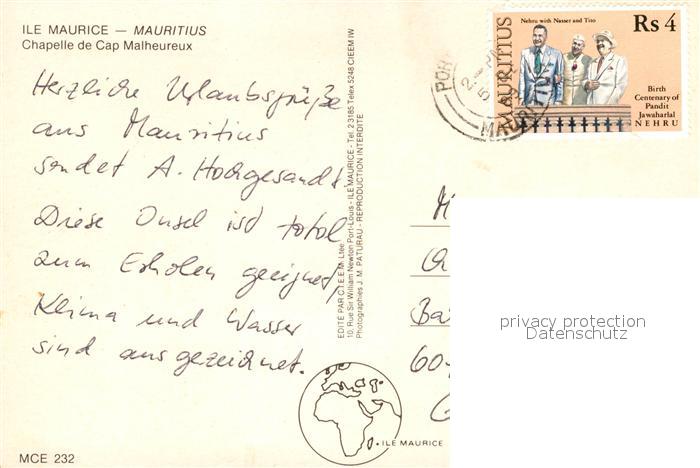 ILE MAURICE – MAURITIUS
Chapelle de Cap Malheureux
Herzliche Urlaubsgrüße
aus Mauritius
sendet A. Hochgesandt
Diese Insel ist total
zum Erholen geeignet,
Klima und Wasser
sind ausgezeichnet.
MCE 232
EDITE PAR C.I.E.E.M. Ltée
10, Rue Sir William Newton Port-Louis - ILE MAURICE - Tel. 2 3185 Telex 5248 CIEEM IW
Photographies J. M. PATURAU - REPRODUCTION INTERDITE
ILE MAURICE
MAURITIUS
Nehru with Nasser and Tito
Rs 4
Birth
Centenary of
Pandit
Jawaharlal
NEHRU
POR
MAURITIUS
60
privacy protection
Datenschutz